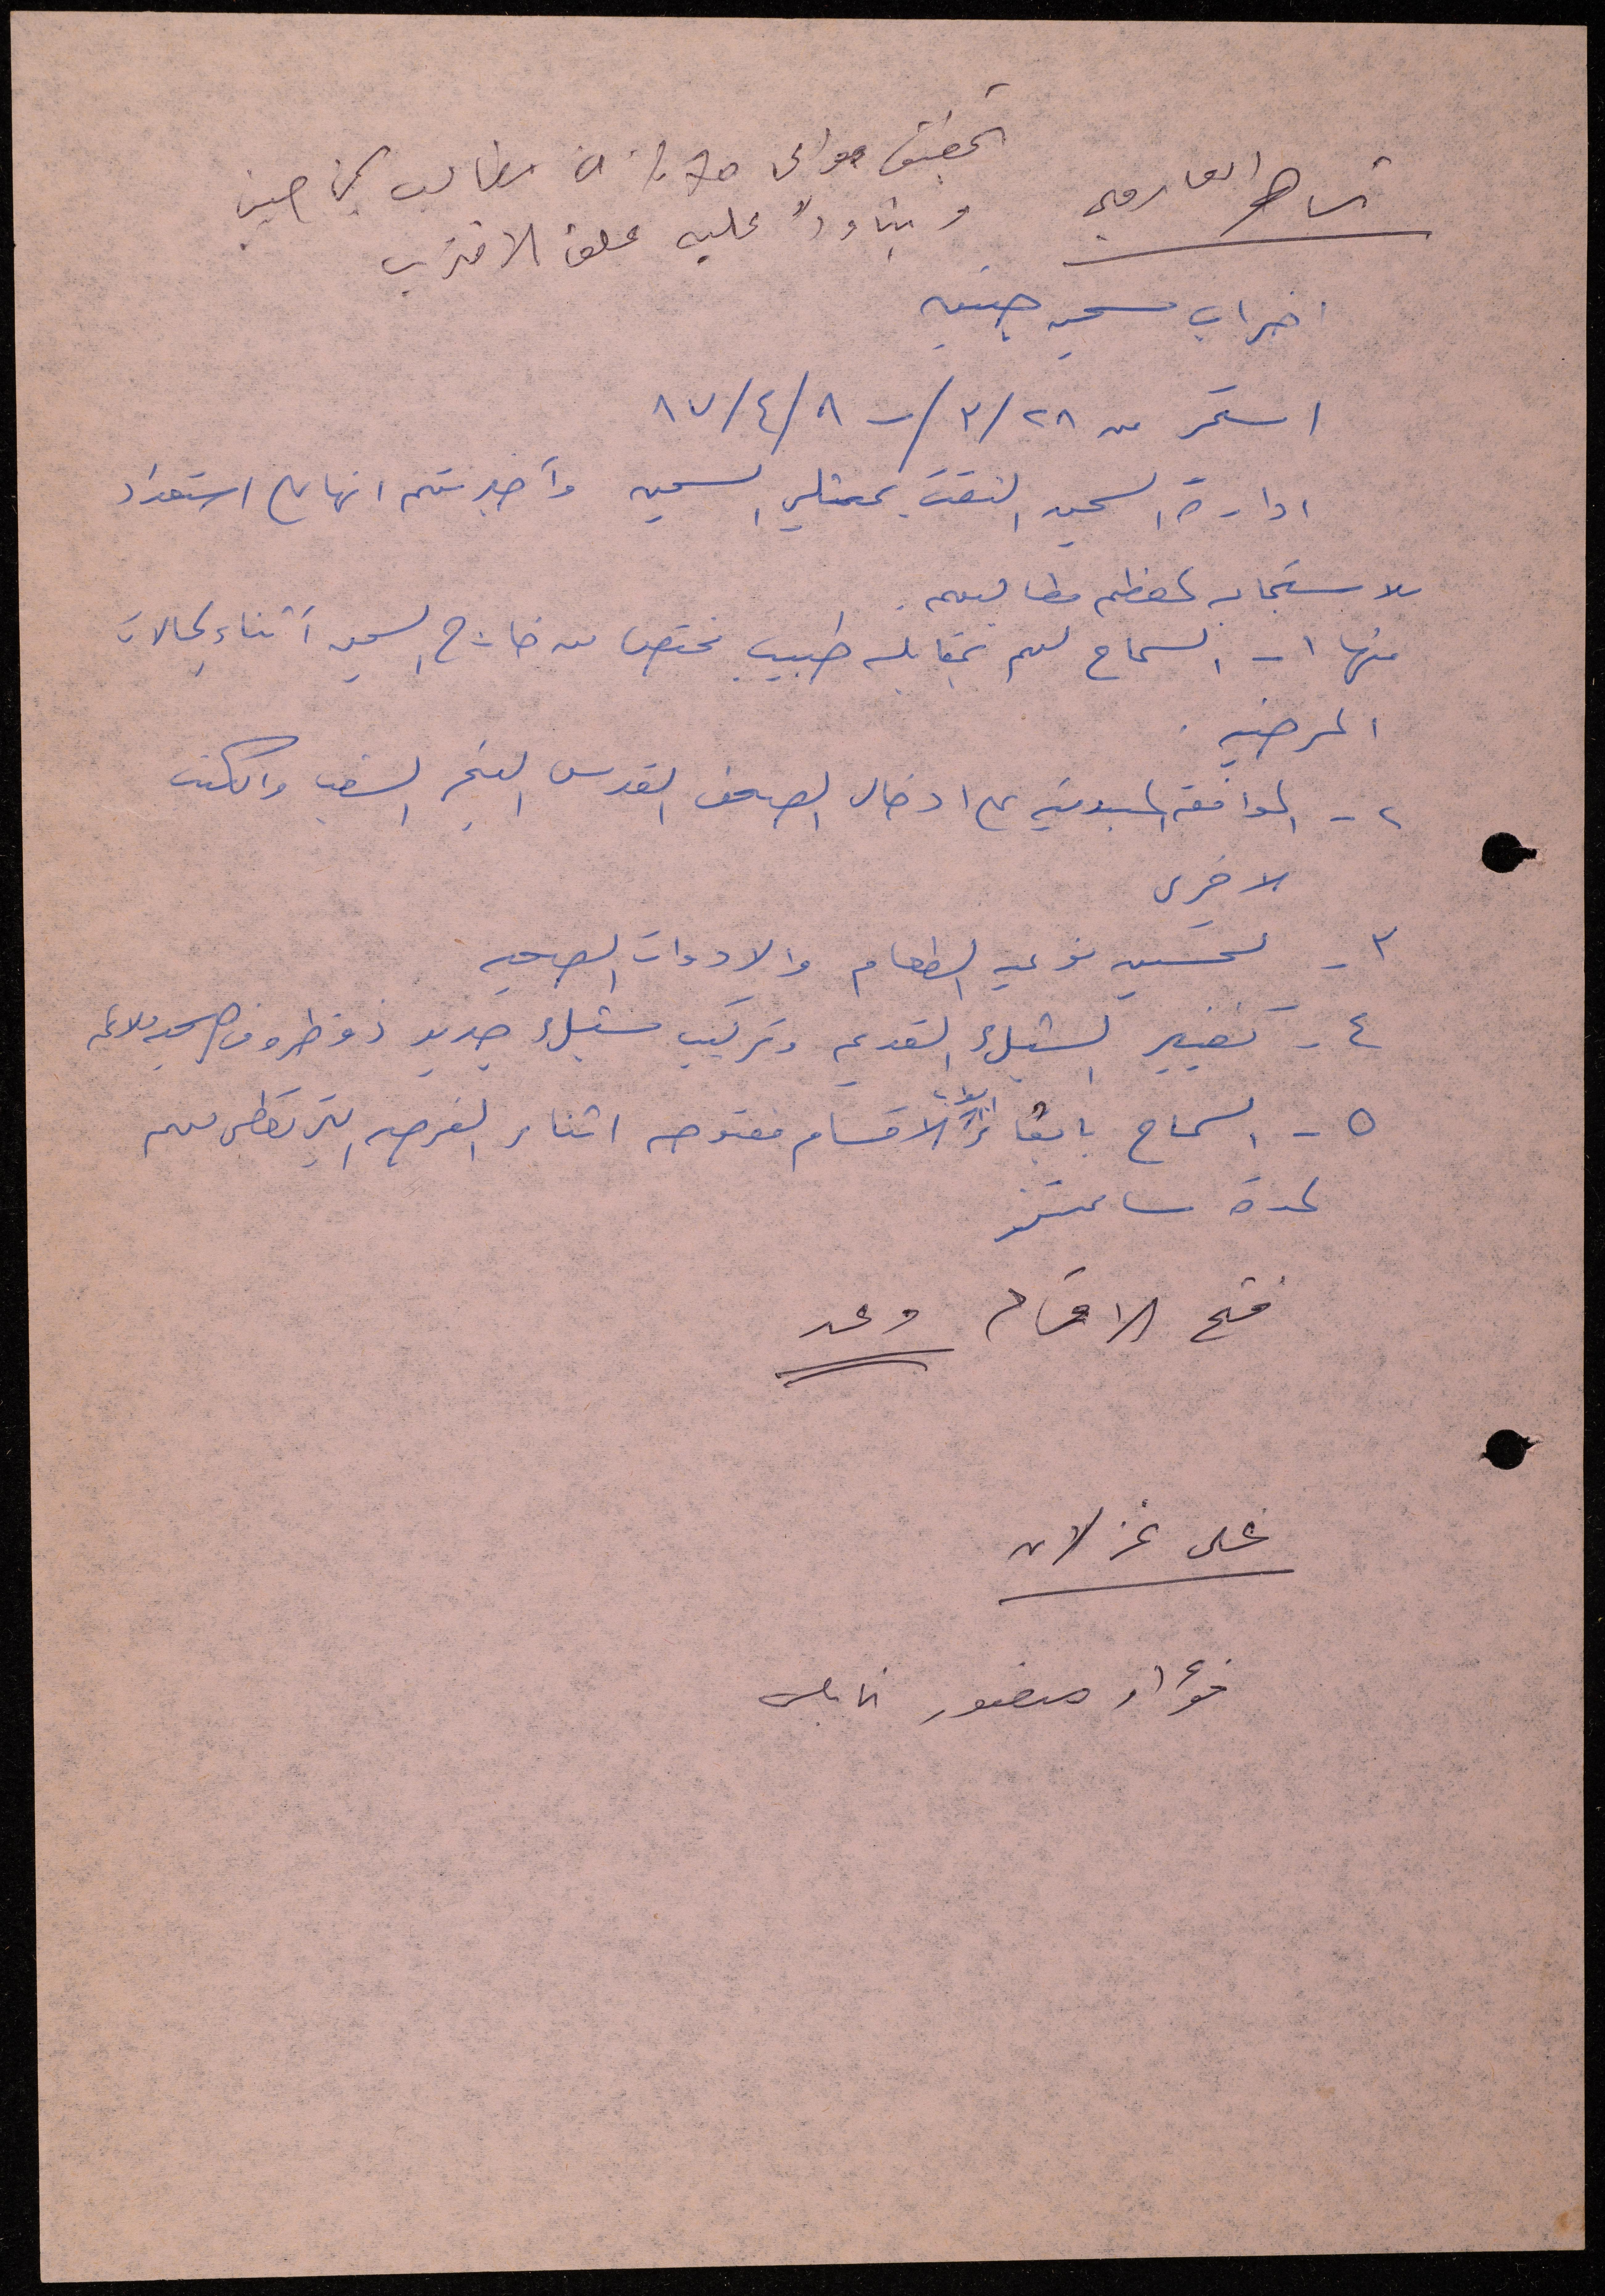 تحقيق حوالي ٥٠٪ من مطالب المساجين
وبناءً عليه علق الاضراب
اضراب سجن جنيد
استمر من ٢٨/٣/ - ٨/٤/٨٧
ادارة السجن التقت بممثلي السجن وأخبرتهم انها على استعداد
للاستجابه لمعظم مطالبهم.
منها ١- السماح لهم بمقابلة طبيب مختص من خارج السجن أثناء الحالات
المرضيه.
٢- الموافقه المبدئيه على ادخال الصحف القدس الفجر الشعب والكتب
الاخرى
٣- تحسين نوعيه الطعام والادوات الصحيه
٤- تغيير الشبك القديم وتركيب شبك جديد ذو ظروف صحيه ملائمه
٥- السماح بابقاء ابواب الاقسام مفتوحه اثناء الفرصه التي تعطى لهم
لمدة ساعتين
فتح الاقسام وعد
على غزلان
فؤاد منصور نابلس